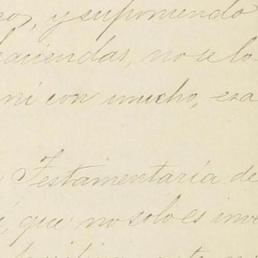 y suponiendo
haciendas, no se lo
ni con mucho, esa
Testamentaría de
que no solo es inve